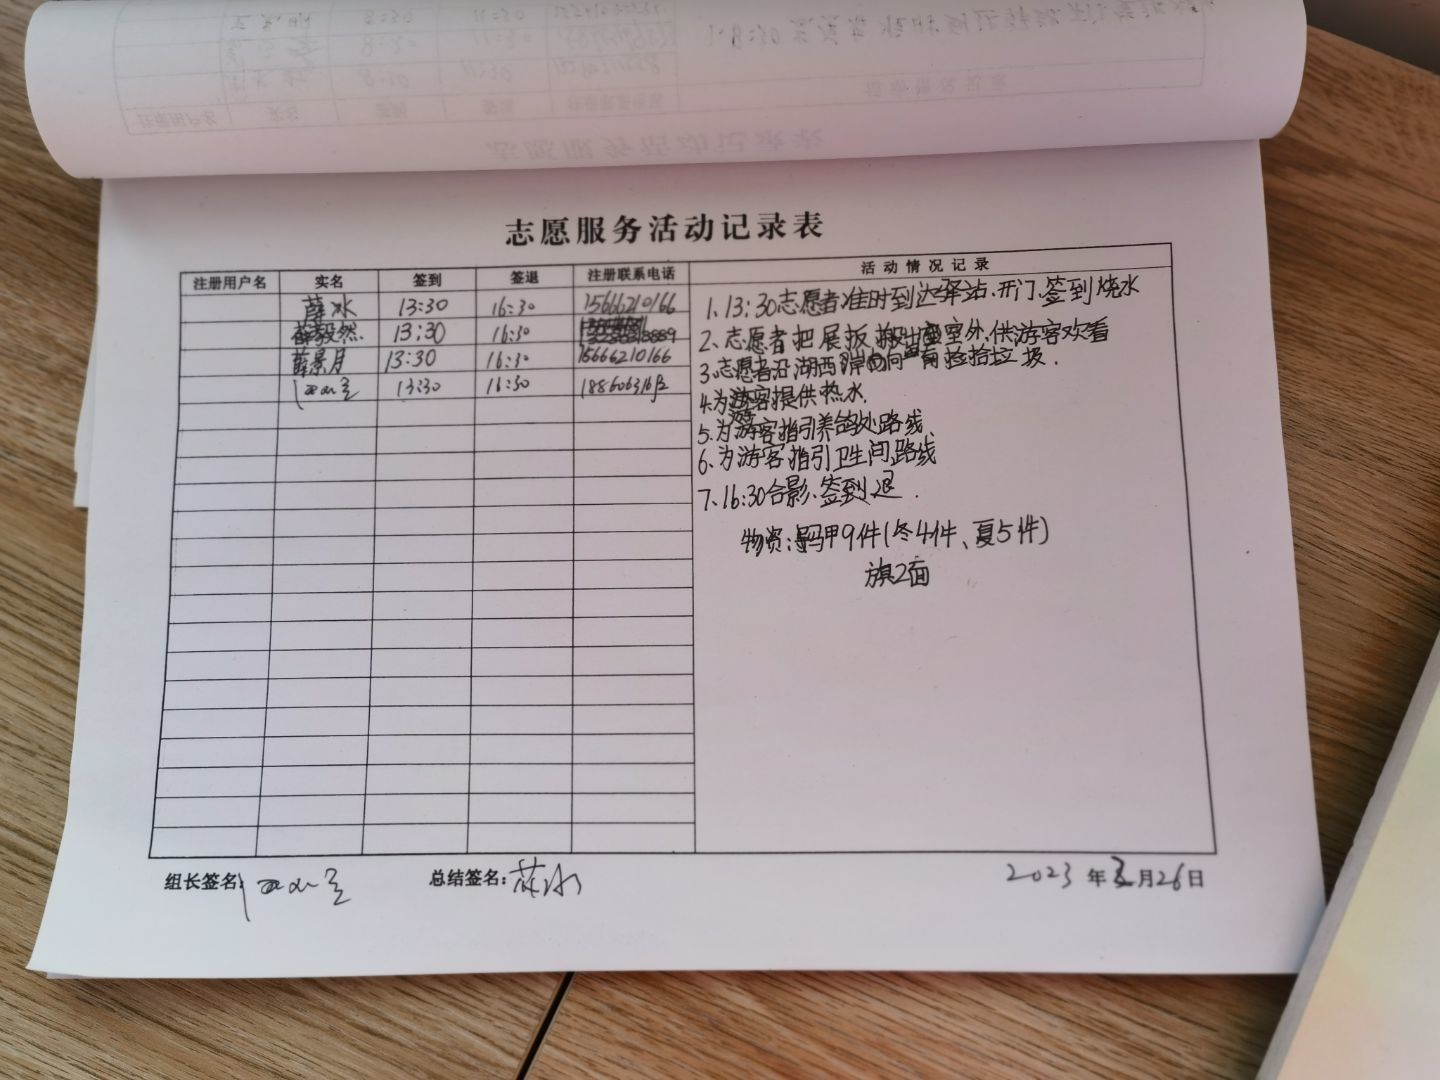 志愿服务活动记录表
注册用户名 实名 签到 签退 注册联系电话 活动情况记录
薛冰 13:30 16:30 15666210166
薛毅然 13:30 16:30
薛景月 13:30 16:30 15666210166
13:30 16:30
1、13:30志愿者准时到达驿站、开门、签到烧水
2、志愿者把展板搬出室外,供游客欢看
3、志愿者沿湖西岸向南捡拾垃圾.
4.为游客提供热水.
5、为游客指引养鸽处路线
6、为游客指引卫生间路线
7、16:30合影、签到退.
物资:马甲9件(冬4件、夏5件)
旗2面
组长签名: 总结签名:薛冰 2023年3月26日